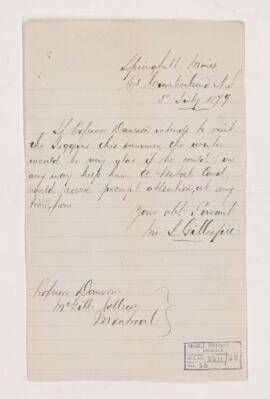 Springhill Mines
Co Cumberland N.S.
5 July 1879
If Professor Dawson intends to visit
the Joggins this summer, the writer
would be very glad if he could in
any way help him. A Postal Card,
would receive prompt attention, at any
time, from
Your obt Servant
Mr Gillespie
Professor Dawson
McGill College
Montreal